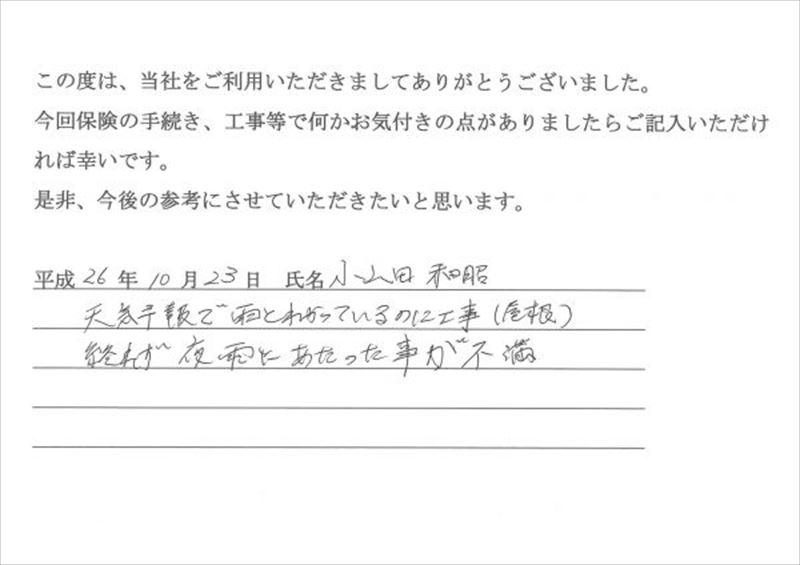 この度は、当社をご利用いただきましてありがとうございました。
今回保険の手続き、工事等で何かお気付きの点がありましたらご記入いただけ
れば幸いです。
是非、今後の参考にさせていただきたいと思います。
平成 26 年 10 月 23 日 氏名 小山田 和昭
天気予報で雨とわかっているのに工事(屋根)
終れず 夜 雨にあたった事が不満